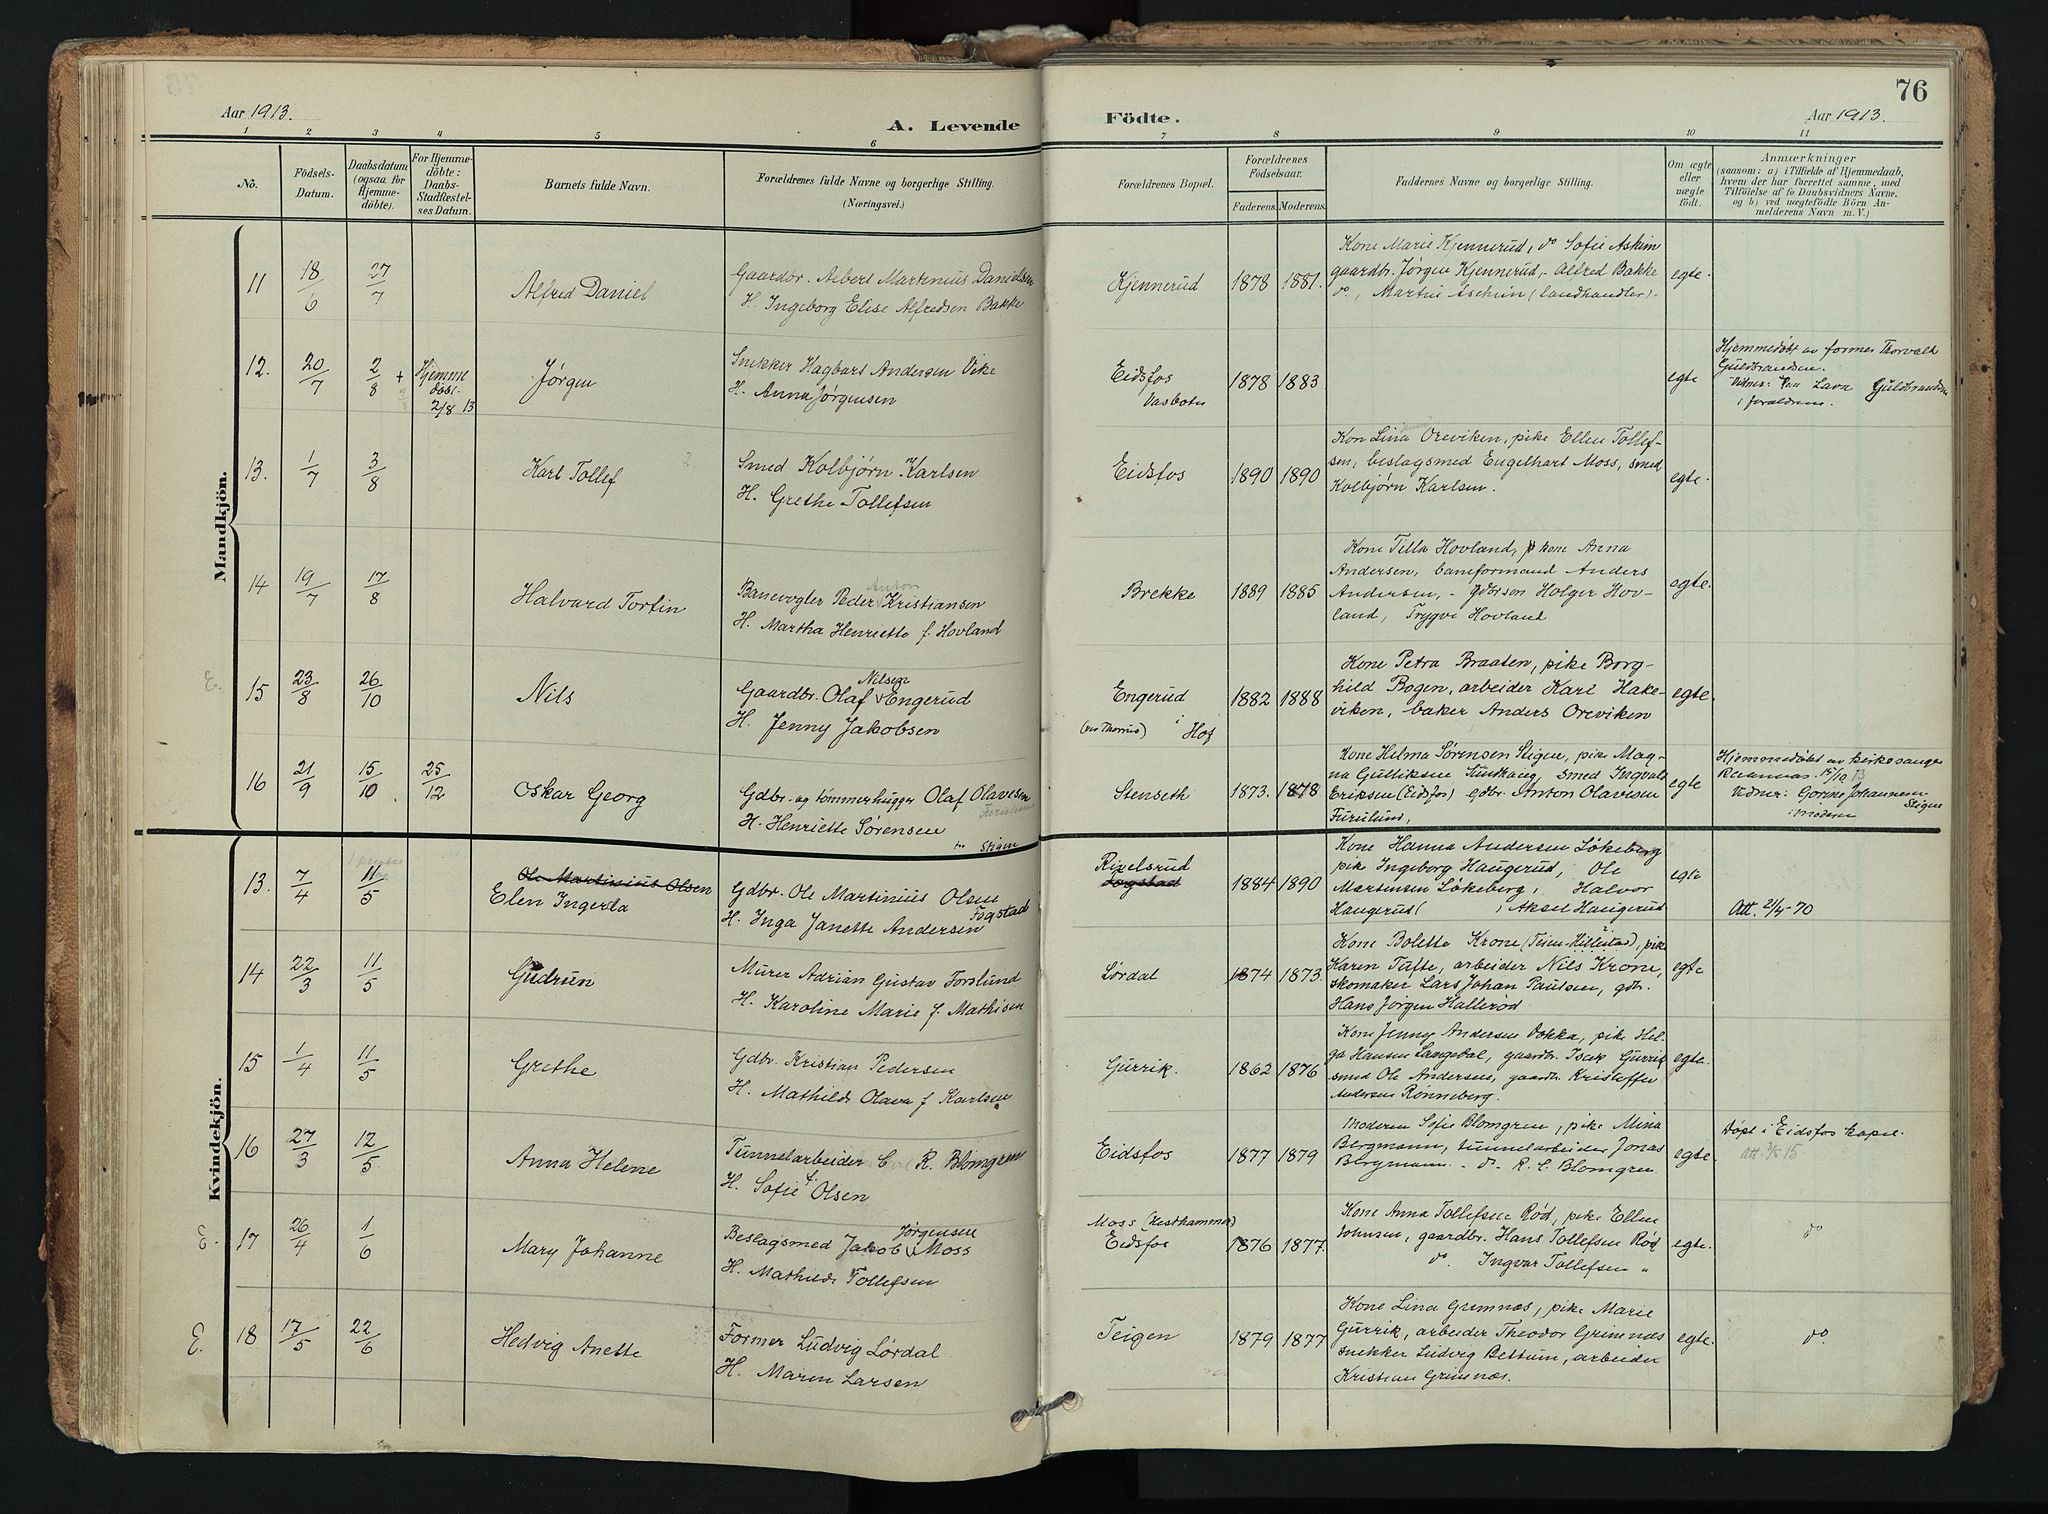 76
Aar 1913.
A. Levende
Födte.
Aar 1913.
1 2 3 4 5 6 7 8 9 10 11
No.
Födsels-
Datum.
Daabsdatum
(ogsaa for
Hjemme-
döbte).
For Hjemme-
döbte:
Daabs-
Stadfæstel-
ses Datum.
Barnets fulde Navn.
Forældrenes fulde Navne og borgerlige Stilling.
(Næringsvei.)
Forældrenes Bopæl.
Forældrenes
Födselsaar.
Faderens. Moderens.
Faddernes Navne og borgerlige Stilling.
Om ægte
eller
uægte
födt.
Anmærkninger
(saasom: a) i Tilfælde af Hjemmedaab,
hvem der har forrettet samme, med
Tilföielse af to Daabsvidners Navne,
og b) ved uægtefödte Börn An-
melderens Navn m. V.)
Mandkjön.
11 18/6 27/7 Alfred Daniel
Gaardbr. Albert Martinius Danielsen
H. Ingeborg Elise Alfredsen Bakke
Kjennerud 1878 1881.
Kone Marie Kjennerud, do Sofie Askim
gaardbr. Jørgen Kjennerud, - Alfred Bakke
do, Martin Aschim (landhandler).
egte.
12. 20/7 2/8 + Hjemme
døbt.
2/8 13
Jørgen
Snekker Hagbart Andersen Vike
H. Anna Jørgensen
Eidsfos
Vasboten
1878 1883
egte
Hjemmedøbt av former Thorvald
Guldbrandsen.
Vidner: Lava Guldbrandsen
i forældrene.
13. 1/7 3/8 Karl Tollef
Smed Kolbjørn Karlsen
H. Grethe Tollefsen
Eidsfos 1890 1890
Kon Lina Oreviken, pike Ellen Tollef-
sen, beslagsmed Engelhart Moss, smed
Kolbjørn Karlsen.
egte.
14 19/7 17/8 Halvard Torfin
Anton
Banevogter Peder Kristiansen
H. Martha Henriette f. Hovland
Brekke 1889 1885
Kone Tilla Hovland, kone Anna
Andersen, baneformand Anders
Andersen, - gdbrsøn Holger Hov-
land, Trygvi Hovland
egte.
E. 15 23/8 26/10 Nils
Nilsen
Gaardbr. Olaf Engerud
H. Jenny Jakobsen
Engerud
i Hof
1882 1888
Kone Petra Braaten, pike Borg-
hild Bogen, arbeider Karl Hake-
viken, baker Anders Oreviken
egte.
16 21/9 15/10 25/12 Oskar Georg
Gdbr. og tømmerhugger Olaf Olavesen
Furulund
H. Henriette Sørensen
Stigen
Stenseth 1873. 1878
Kone Helma Sørensen Stigen, pike Mag-
na Gulliksen, smed Ingvald
Eriksen (Eidsfos) gdbr. Anton Olavesen
Furulund,
egte
Hjemmedøbt av kirkesanger
15/10 13
Vidner: Johannesen
Stigen
i moderen
Kvindekjön.
13. 7/4 11/5 Ole Martinius Olsen
Elen Ingerda
Gdbr. Ole Martinius Olsen
Fogstad
H. Inga Janette Andersen
Rivelsrud
Fogstad
1884 1890
Kone Hanna Andersen Løkeberg
pike Ingeborg Haugerud, Ole
Martinsen Løkeberg, Halvor
Haugerud ( ) Aksel Haugerud
egte
Att. 21/4-70
14 22/3 11/5 Gudrun
Murer Adrian Gustav Forslund
H. Karoline Marie f. Mathisen
Lørdal 1874 1873.
Kone Bolette Krone (Teien-Hillestad), pike
Karen Tufte, arbeider Nils Krone,
skomaker Lars Johan Paulsen, gdbr.
Hans Jørgen Hallerød.
egte
15 1/4 11/5 Grethe
Gdbr. Kristian Pedersen
H. Mathilde Olava f. Karlsen
Gurrik. 1862 1876
Kone Jenny Andersen Dokka, pike Hel-
ga Hansen Langedal, gaardbr. Isak Gurrik
smed Ole Andersen, gaardbr. Kristoffer
Andersen Rønneberg.
egte.
16 27/3 12/5 Anna Helene
Tunnelarbeider C. R. Blomgren
H. Sofie Olsen
Eidsfos 1877 1879
Moderen Sofie Blomgren, pike Mina
Bergmann, tunnelarbeider Jonas
Bergmann - do - R. C. Blomgren
egte.
Døpt i Eidsfos kapel.
E. 17 26/4 1/6 Mary Johanne
Jørgensen
Beslagsmed Jakob Moss
H. Mathilde Tollefsen
Moss (Vesthammer)
Eidsfos
1876 1877.
Kone Anna Tollefsen Rød, pike Ellen
Johnsen, gaardbr. Hans Tollefsen Rød
do. Ingvar Tollefsen "
egte.
do
E. 18 17/5 22/6 Hedvig Anette
Former Ludvig Lørdal
H. Maren Larsen
Teigen 1879 1877
Kone Lina Grimnæs, pike Marie
Gurrik, arbeider Theodor Grimnæs
snekker Ludvig Bettum, arbeider
Kristian Grimnæs.
egte.
do